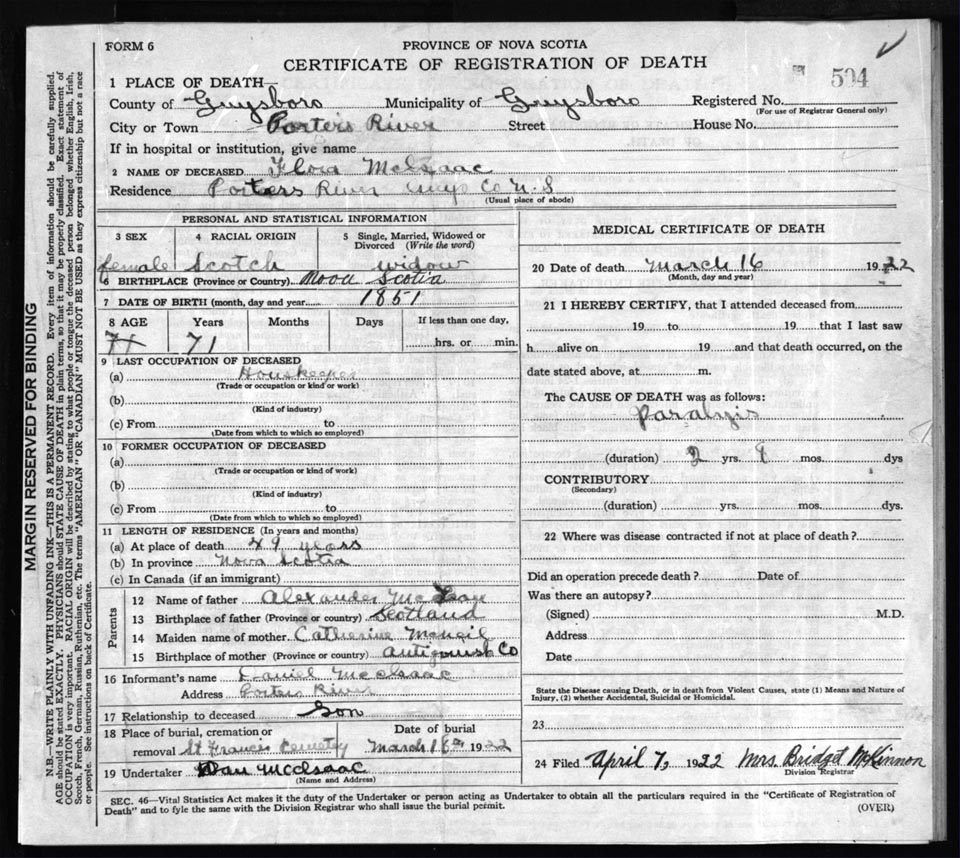 FORM 6
PROVINCE OF NOVA SCOTIA
CERTIFICATE OF REGISTRATION OF DEATH
504
1 PLACE OF DEATH—
County of Guysboro Municipality of Guysboro Registered No.
(For use of Registrar General only)
City or Town Porters River Street House No.
If in hospital or institution, give name
2 NAME OF DECEASED Flora McIsaac
Residence Porters River Guys Co N.S
(Usual place of abode)
PERSONAL AND STATISTICAL INFORMATION
3 SEX 4 RACIAL ORIGIN 5 Single, Married, Widowed or Divorced (Write the word)
female Scotch widow
6 BIRTHPLACE (Province or Country) Nova Scotia
7 DATE OF BIRTH (month, day and year) 1851
8 AGE Years Months Days If less than one day,
71 hrs. or min.
9 LAST OCCUPATION OF DECEASED
(a) Houskeeper
(Trade or occupation or kind of work)
(b)
(Kind of industry)
(c) From to
(Date from which to which so employed)
10 FORMER OCCUPATION OF DECEASED
(a)
(Trade or occupation or kind of work)
(b)
(Kind of industry)
(c) From to
(Date from which to which so employed)
11 LENGTH OF RESIDENCE (In years and months)
(a) At place of death 49 years
(b) In province Nova Scotia
(c) In Canada (if an immigrant)
Parents
12 Name of father Alexander
13 Birthplace of father (Province or country) Scotland
14 Maiden name of mother Catherine McNeil
15 Birthplace of mother (Province or country) Antigonish Co
16 Informant's name Daniel McIsaac
Address Porters River
17 Relationship to deceased Son
18 Place of burial, cremation or removal St Francis Cemetry
Date of burial March 18th 1922
19 Undertaker Dan McIsaac
(Name and Address)
MEDICAL CERTIFICATE OF DEATH
20 Date of death March 16 1922
(Month, day and year)
21 I HEREBY CERTIFY, that I attended deceased from
19 to 19 that I last saw
h alive on 19 and that death occurred, on the
date stated above, at m.
The CAUSE OF DEATH was as follows:
Paralyzis
(duration) 2 yrs. 9 mos. dys
CONTRIBUTORY
(Secondary)
(duration) yrs. mos. dys.
22 Where was disease contracted if not at place of death?
Did an operation precede death? Date of
Was there an autopsy?
(Signed) M.D.
Address
Date
State the Disease causing Death, or in death from Violent Causes, state (1) Means and Nature of
Injury, (2) whether Accidental, Suicidal or Homicidal.
23
24 Filed April 7, 1922 Mrs. Bridget McKinnon
Division Registrar
SEC. 46—Vital Statistics Act makes it the duty of the Undertaker or person acting as Undertaker to obtain all the particulars required in the "Certificate of Registration of
Death" and to fyle the same with the Division Registrar who shall issue the burial permit.
(OVER)
MARGIN RESERVED FOR BINDING
N.B.—WRITE PLAINLY WITH UNFADING INK—THIS IS A PERMANENT RECORD. Every item of information should be carefully supplied.
AGE should be stated EXACTLY. PHYSICIANS should STATE CAUSE OF DEATH in plain terms, so that it may be properly classified. Exact statement of
OCCUPATION is very important. RACIAL ORIGIN will be described by stating to what people or tongue the deceased person belonged whether English, Irish,
Scotch, French, German, Russian, Ruthenian, etc. The terms "AMERICAN" OR "CANADIAN" MUST NOT BE USED as they express citizenship but not a race
or people. See instructions on back of Certificate.